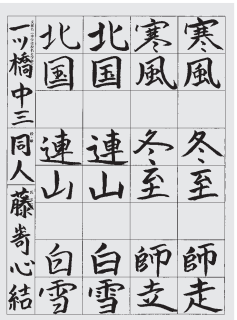 寒風 冬至 師走
寒風 冬至 師走
北国 連山 白雪
北国 連山 白雪
一ツ橋中三 同人 藤嵜心結